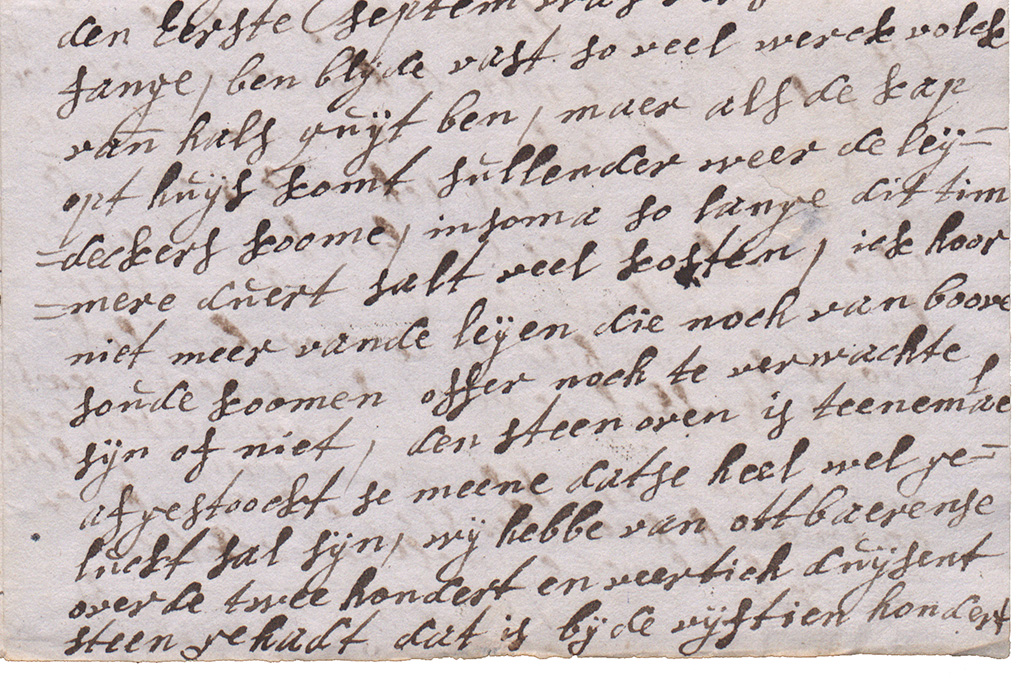 den Eerste Septem
sange, ben blijde vast so veel werck volck
van hals quijt ben, maer als de kap
opt huijs komt sullender weer de leij=
=deckers koome, in soma so lange dit tim
=mere duert salt veel kosten, ick hoor
niet meer vande leijen die noch van boove
soude koomen offer noch te verwachte
sijn of niet, den steen oven is teenemael
afgestoockt se meene datse heel wel ge=
luckt sal sijn, wij hebbe van ottbaerense
over de twee hondert en veertich duijsent
steen gehadt dat is bijde vijftien hondert